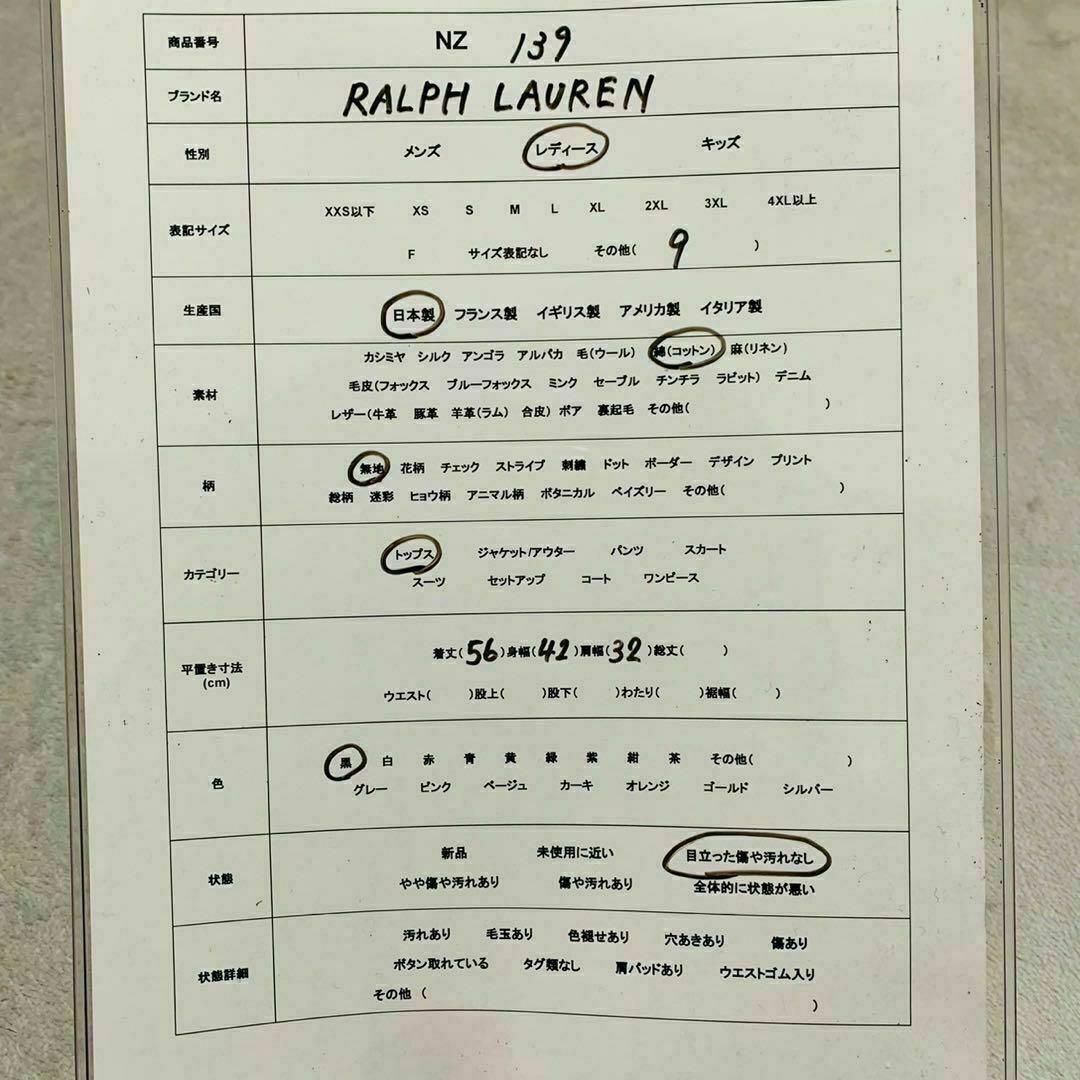 商品番号 NZ 139
ブランド名 RALPH LAUREN
性別 メンズ レディース キッズ
表記サイズ
XXS以下 XS S M L XL 2XL 3XL 4XL以上
F サイズ表記なし その他( 9 )
生産国 日本製 フランス製 イギリス製 アメリカ製 イタリア製
素材
カシミヤ シルク アンゴラ アルパカ 毛(ウール) 綿(コットン) 麻(リネン)
毛皮(フォックス ブルーフォックス ミンク セーブル チンチラ ラビット) デニム
レザー(牛革 豚革 羊革(ラム) 合皮) ボア 裏起毛 その他( )
柄
無地 花柄 チェック ストライプ 刺繍 ドット ボーダー デザイン プリント
総柄 迷彩 ヒョウ柄 アニマル柄 ボタニカル ペイズリー その他( )
カテゴリー
トップス ジャケット/アウター パンツ スカート
スーツ セットアップ コート ワンピース
平置き寸法
(cm)
着丈(56)身幅(42)肩幅(32)総丈( )
ウエスト( )股上( )股下( )わたり( )裾幅( )
色
黒 白 赤 青 黄 緑 紫 紺 茶 その他( )
グレー ピンク ベージュ カーキ オレンジ ゴールド シルバー
状態
新品 未使用に近い 目立った傷や汚れなし
やや傷や汚れあり 傷や汚れあり 全体的に状態が悪い
状態詳細
汚れあり 毛玉あり 色褪せあり 穴あきあり 傷あり
ボタン取れている タグ類なし 肩パッドあり ウエストゴム入り
その他 ( )